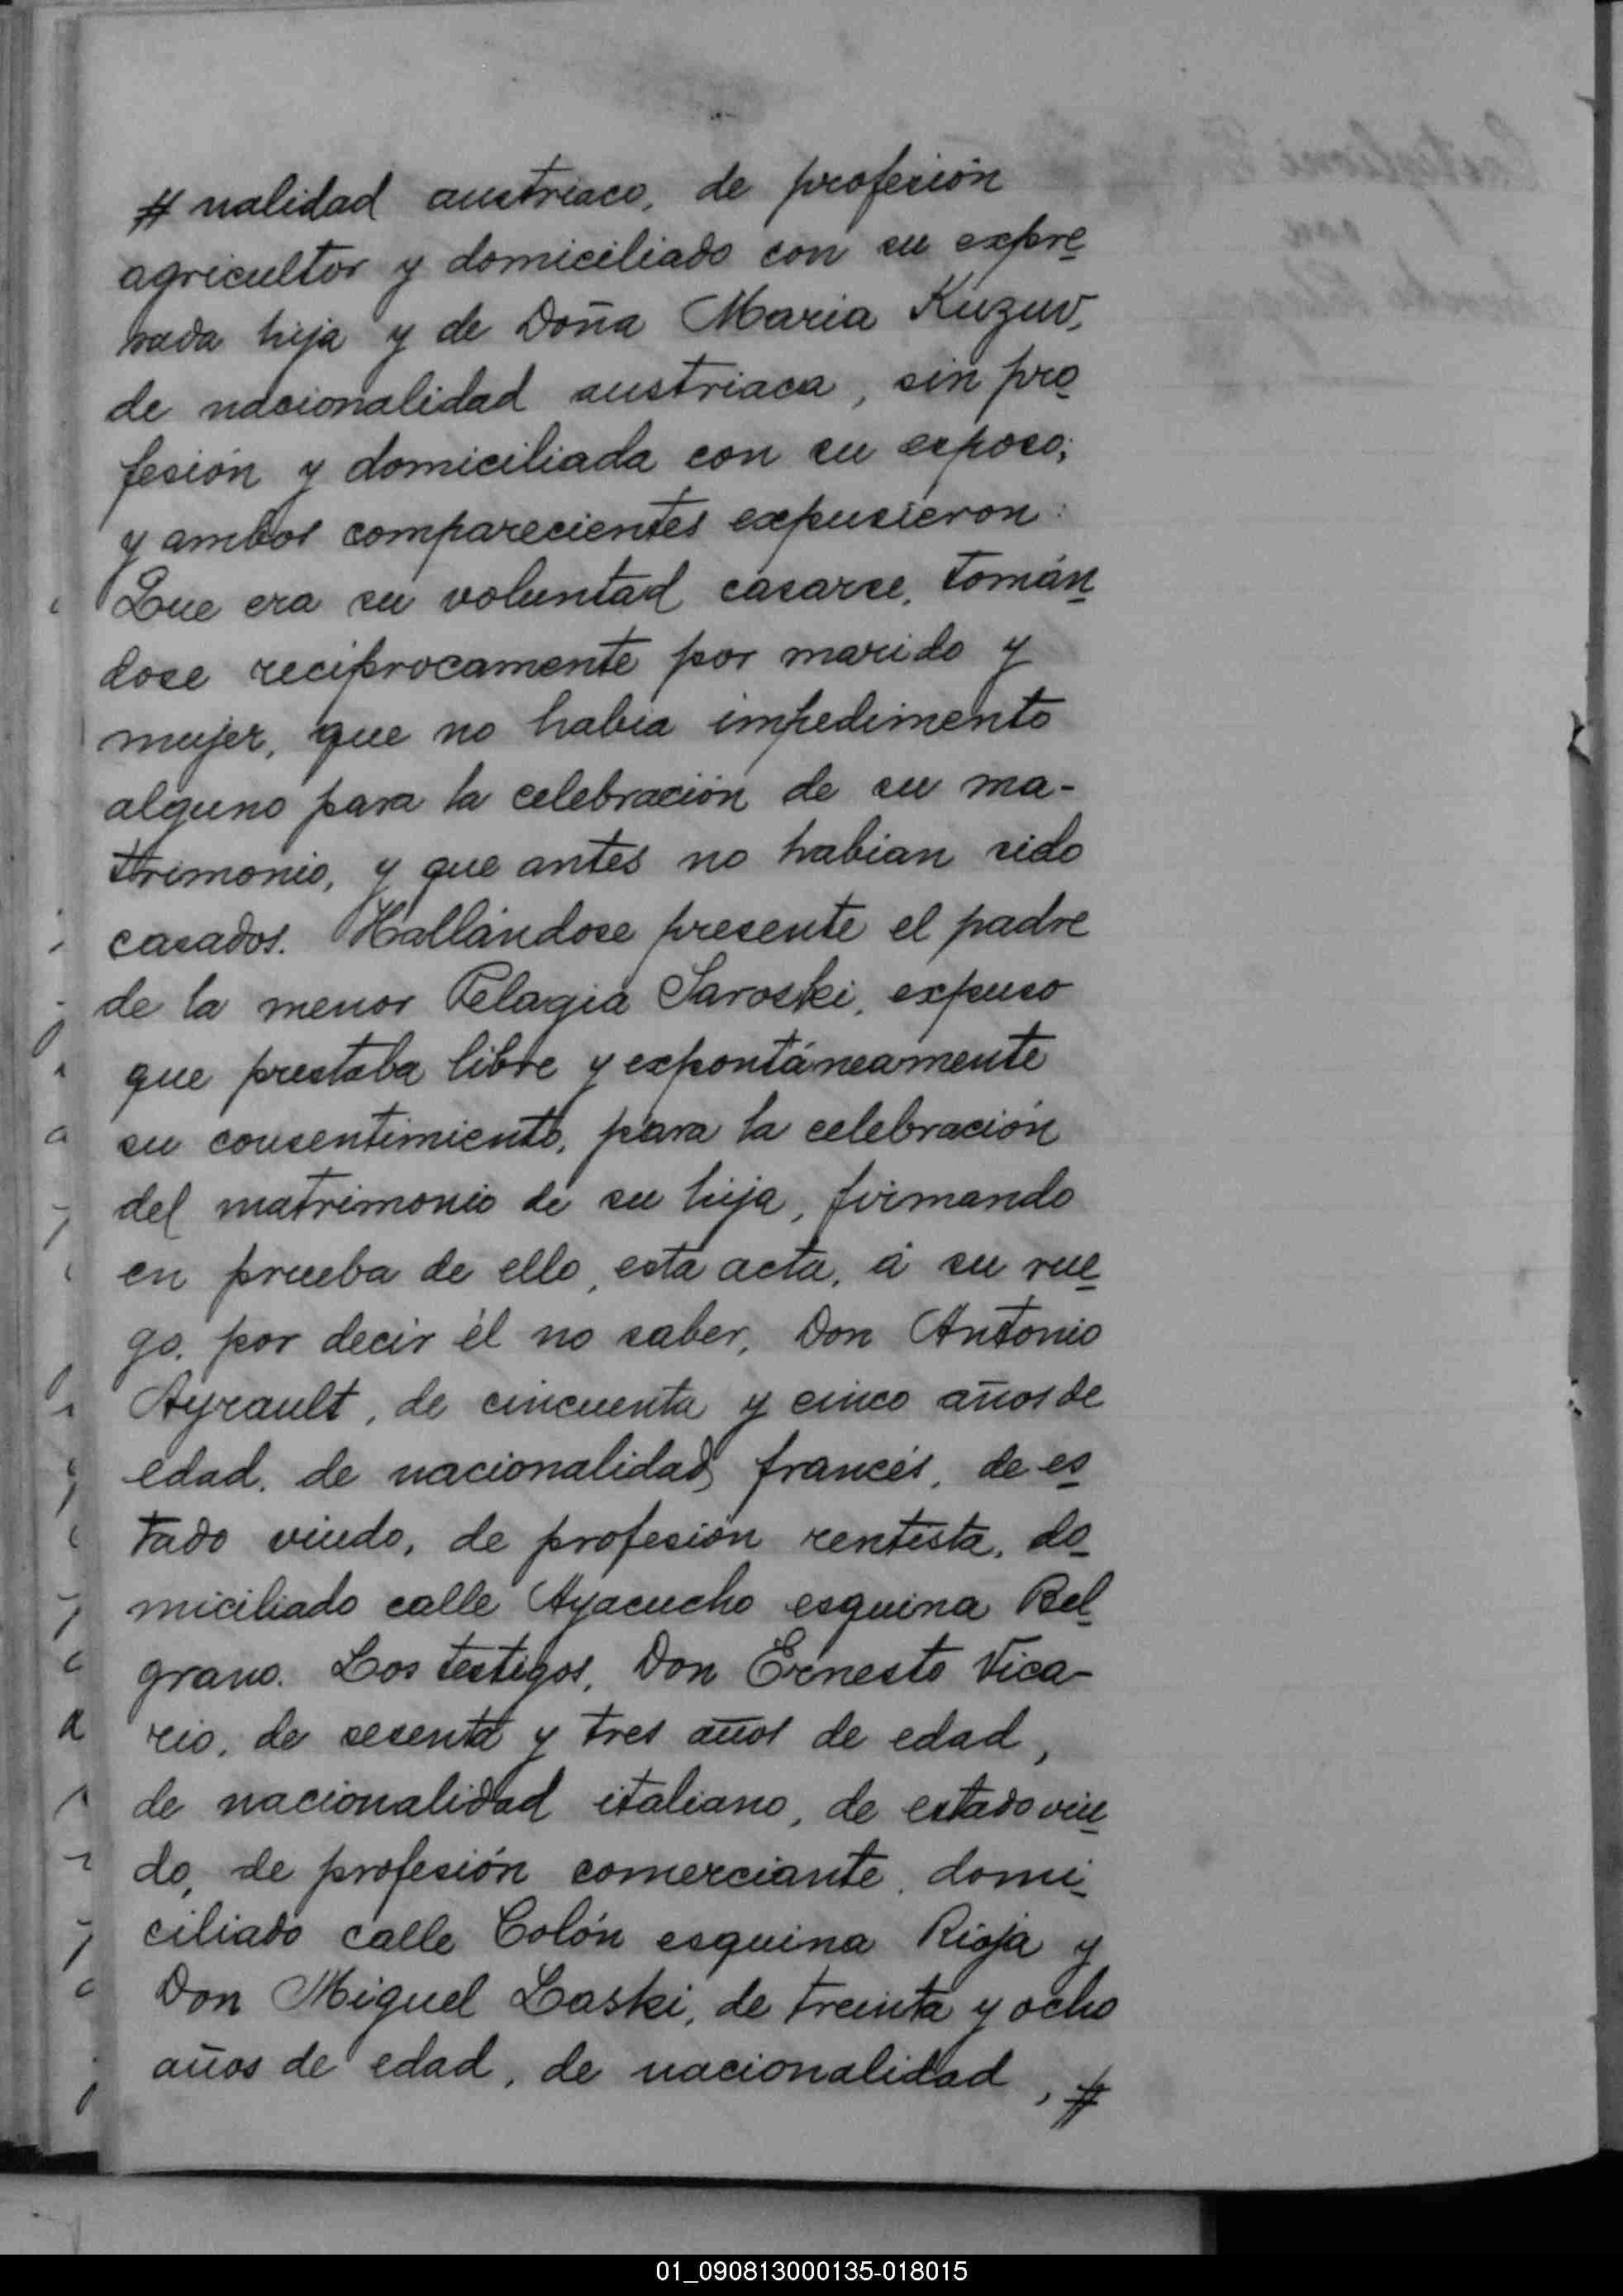 # nalidad austriaco, de profesión
agricultor y domiciliado con su expre
sada hija y de Doña Maria Kuzuv,
de nacionalidad austriaca, sin pro
fesión y domiciliada con su esposo;
y ambos comparecientes expusieron:
Que era su voluntad casarse, tomán
dose reciprocamente por marido y
mujer, que no habia impedimento
alguno para la celebración de su ma-
trimonio, y que antes no habian sido
casados. Hallándose presente el padre
de la menor Pelagia Saroski, expuso
que prestaba libre y expontáneamente
su consentimiento, para la celebración
del matrimonio de su hija, firmando
en prueba de ello, esta acta, á su rue
go, por decir él no saber, Don Antonio
Ayrault, de cincuenta y cinco años de
edad, de nacionalidad francés, de es
tado viudo, de profesión rentista, do
miciliado calle Ayacucho esquina Bel
grano. Los testigos, Don Ernesto Vica-
rio, de sesenta y tres años de edad,
de nacionalidad italiano, de estado viu
do, de profesión comerciante, domi
ciliado calle Colón esquina Rioja y
Don Miguel Laski, de treinta y ocho
años de edad, de nacionalidad, #
01_090813000135-018015